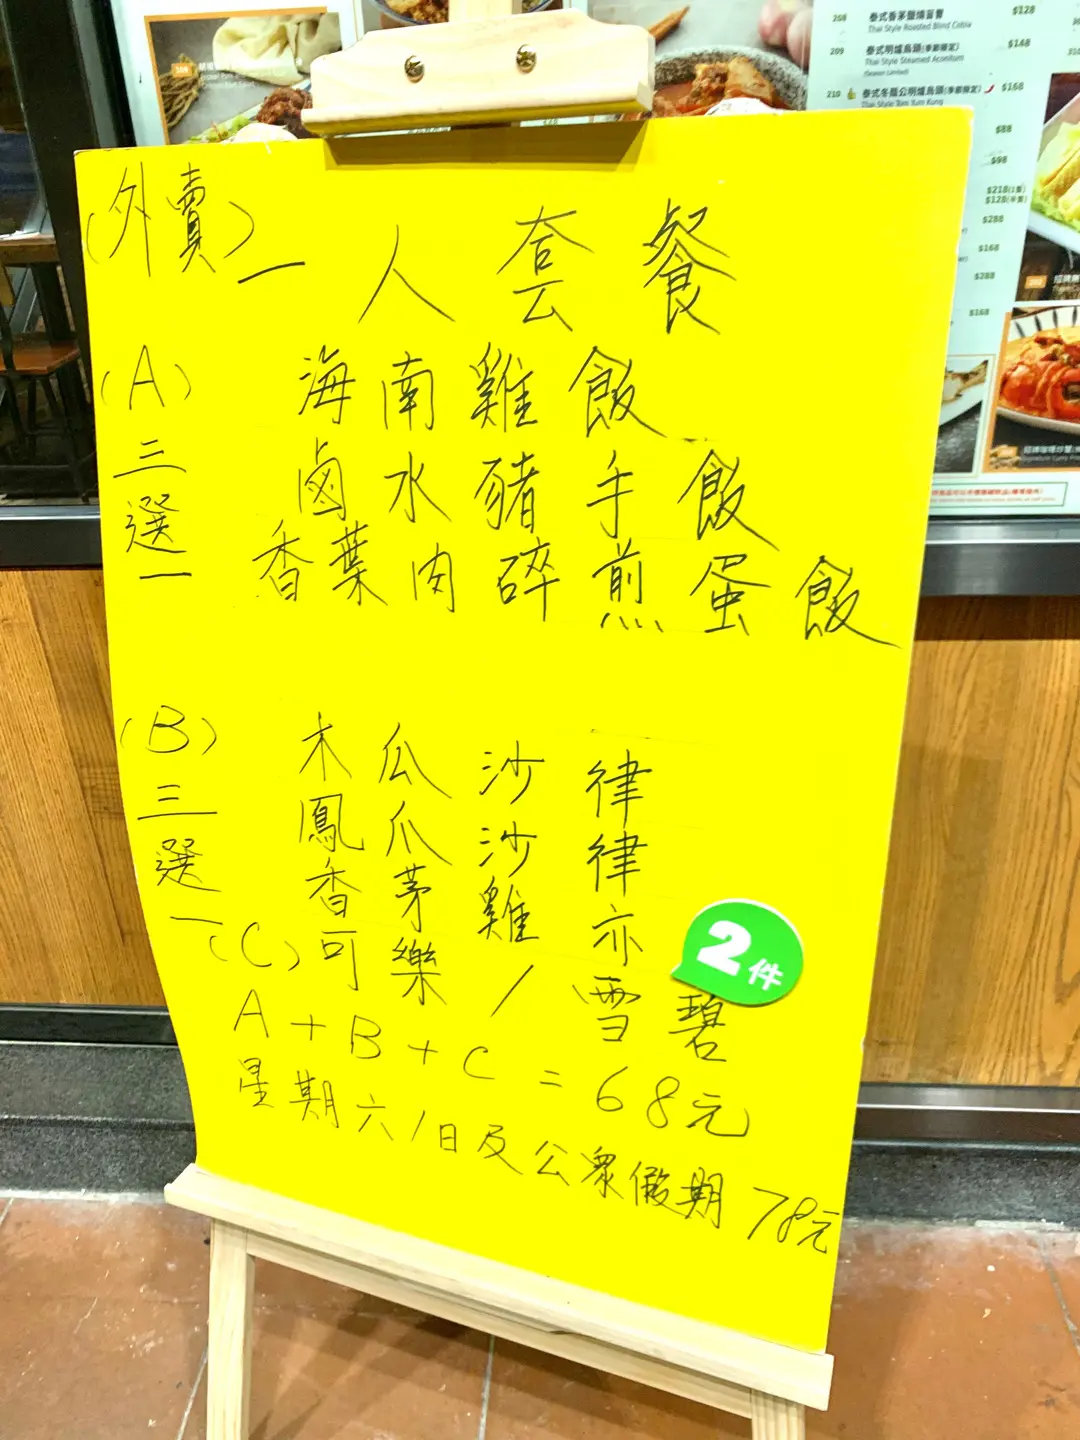 (外賣)一人套餐
(A) 海南雞飯
三選一 鹵水豬手飯
香葉肉碎煎蛋飯
(B) 木瓜沙律
三選一 鳳爪沙律
香茅雞亦 2件
(C) 可樂/雪碧
A+B+C=68元
星期六/日及公眾假期 78元
208 泰式香茅鹽燒盲曹 $128
Thai Style Roasted Blind Cobia
209 泰式明爐烏頭(季節限定) $148
Thai Style Steamed Aconitum
(Season Limited)
210 泰式冬蔭公明爐烏頭(季節限定) $168
Thai Style Tom Yum Kung
$88
$98
$288
$168
$288
$168